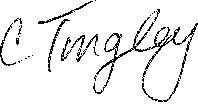 C Tingley